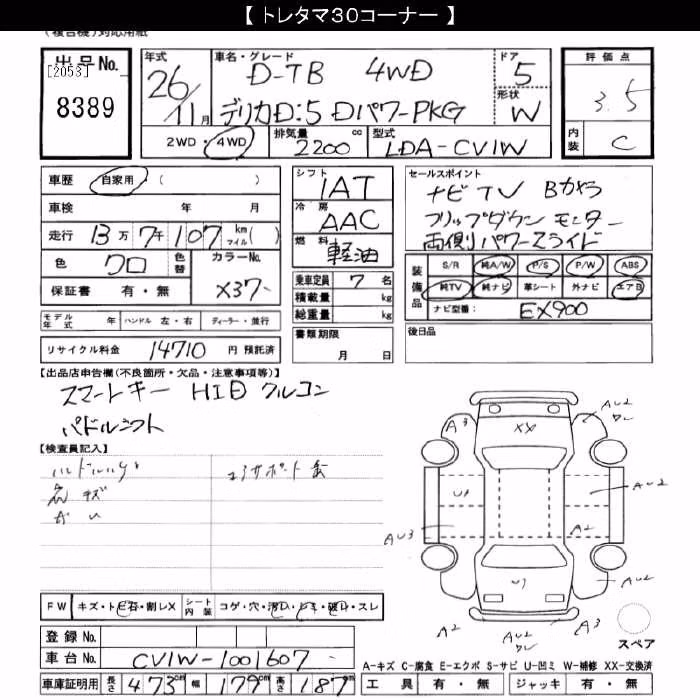 【 トレタマ30コーナー 】
(複合機)対応用紙
出品No.
[2053]
8389
年式
26/11月
車名・グレード
D-TB 4WD
デリカD:5 DパワーPKG
ドア
5
形状
W
評価点
3.5
内装
C
2WD・4WD
排気量
2200 cc
型式
LDA-CV1W
車歴 自家用・( )
車検 年 月
走行 13万7千107 km マイル( )
色 クロ 色替
カラーNo. X37-
保証書 有・無
シフト
1AT
冷房
AAC
燃料
軽油
乗車定員 7 名
積載量 kg
総重量 kg
書類期限
月 日
セールスポイント
ナビTV Bカメラ
フリップダウンモニター
両側パワースライド
装備品
S/R 純A/W P/S P/W ABS
純TV 純ナビ 革シート 外ナビ エアB
ナビ型番: EX900
後日品
モデル年式 年 ハンドル 左・右 ディーラー・並行
リサイクル料金 14710 円 預託済
【出品店申告欄(不良箇所・欠品・注意事項等)】
スマートキー HID クルコン
パドルシフト
【検査員記入】
コアサポート
A3
XX
AU2
U1
AU2
AU3
A2
AU2
U1
A2
AU2
A3
スペア
FW キズ・トビ石・割レX
シート内装 コゲ・穴・汚レ・シミ・破レ・スレ
登録No.
車台No. CV1W-1001607
車庫証明用 長さ 473cm 幅 179cm 高さ 187cm
A-キズ C-腐食 E-エクボ S-サビ U-凹ミ W-補修 XX-交換済
工具 有・無 ジャッキ 有・無